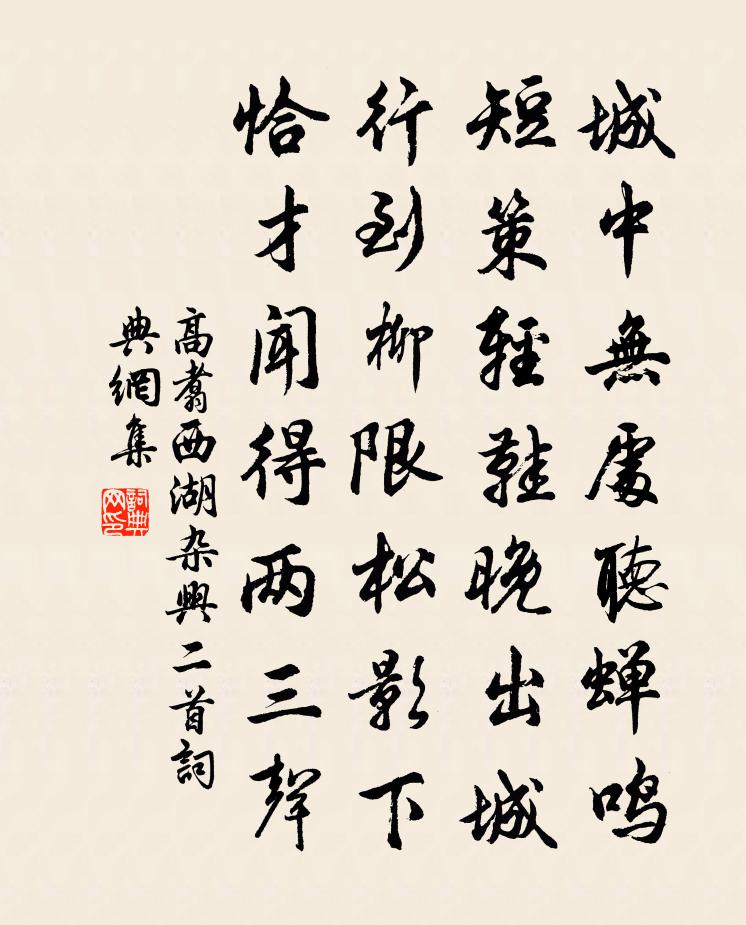 城中無處聽蝉鸣
短策輕鞋晚出城
行到柳限松影下
恰才聞得两三聲
高翥西湖杂興二首詞
典網集
詞典网印